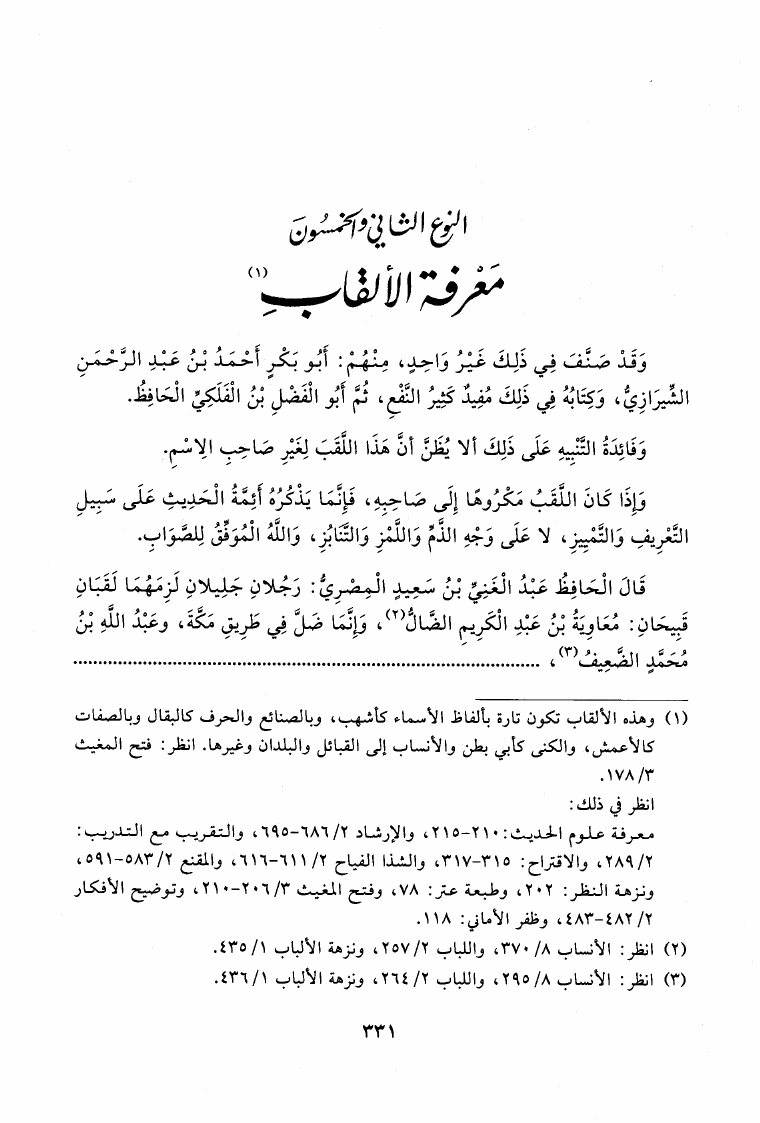 النوع الثاني والخمسُونَ
مَعْرفة الألقابِ (١)
وَقَدْ صَنَّفَ فِي ذَلِكَ غَيْرُ وَاحِدٍ، مِنْهُمْ: أَبُو بَكْرٍ أَحْمَدُ بْنُ عَبْدِ الرَّحْمَنِ
الشِّيرَازِيُّ، وَكِتَابُهُ فِي ذَلِكَ مُفِيدٌ كَثِيرُ النَّفْعِ، ثُمَّ أَبُو الْفَضْلِ بْنُ الْفَلَكِيِّ الْحَافِظُ.
وَفَائِدَةُ التَّنْبِيهِ عَلَى ذَلِكَ ألا يُظَنَّ أنَّ هَذَا اللَّقَبَ لِغَيْرِ صَاحِبِ الِاسْمِ.
وَإِذَا كَانَ اللَّقَبُ مَكْرُوهًا إِلَى صَاحِبِهِ، فَإِنَّمَا يَذْكُرُهُ أَئِمَّةُ الْحَدِيثِ عَلَى سَبِيلِ
التَّعْرِيفِ وَالتَّمْيِيزِ، لا عَلَى وَجْهِ الذَّمِّ وَاللَّمْزِ وَالتَّنَابُزِ، وَاللَّهُ الْمُوَفِّقُ لِلصَّوَابِ.
قَالَ الْحَافِظُ عَبْدُ الْغَنِيِّ بْنُ سَعِيدٍ الْمِصْرِيُّ: رَجُلانِ جَلِيلانِ لَزِمَهُمَا لَقَبَانِ
قَبِيحَانِ: مُعَاوِيَةُ بْنُ عَبْدِ الْكَرِيمِ الضَّالُّ(٢)، وَإِنَّمَا ضَلَّ فِي طَرِيقِ مَكَّةَ، وَعَبْدُ اللَّهِ بْنُ
مُحَمَّدٍ الضَّعِيفُ(٣)، ..........................................................................
(١) وهذه الألقاب تكون تارة بألفاظ الأسماء كأشهب، وبالصنائع والحرف كالبقال وبالصفات
كالأعمش، والكنى كأبي بطن والأنساب إلى القبائل والبلدان وغيرها. انظر: فتح المغيث
٣/ ١٧٨.
انظر في ذلك:
معرفة علوم الحديث: ٢١٠-٢١٥، والإرشاد ٢/ ٦٨٦-٦٩٥، والتقريب مع التدريب:
٢/ ٢٨٩، والاقتراح: ٣١٥-٣١٧، والشذا الفياح ٢/ ٦١١-٦١٦، والمقنع ٢/ ٥٨٣-٥٩١،
ونزهة النظر: ٢٠٢، وطبعة عتر: ٧٨، وفتح المغيث ٣/ ٢٠٦-٢١٠، وتوضيح الأفكار
٢/ ٤٨٢-٤٨٣، وظفر الأماني: ١١٨.
(٢) انظر: الأنساب ٨/ ٣٧٠، واللباب ٢/ ٢٥٧، ونزهة الألباب ١/ ٤٣٥.
(٣) انظر: الأنساب ٨/ ٢٩٥، واللباب ٢/ ٢٦٤، ونزهة الألباب ١/ ٤٣٦.
٣٣١